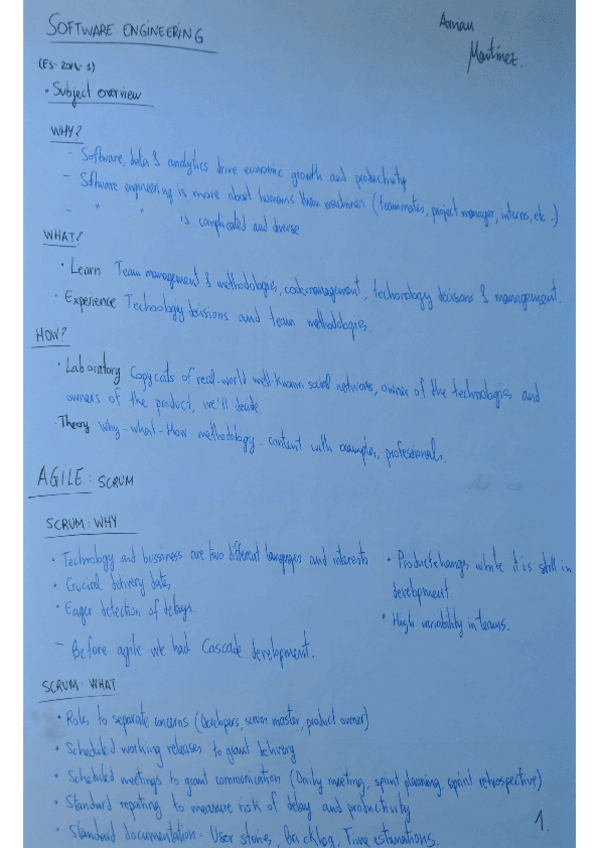 SOFTWARE ENGINEERING
Arnau
Martínez.
• Subject overview
WHY?
- Software, data & analytics drive economic growth and productivity
- Software engineering is more about humans than machines (teammates, project manager, interns, etc.)
- " " is complicated and diverse.
WHAT?
• Learn Team management & methodologies, code management, technology decisions & management.
• Experience Technology decisions and team methodologies.
HOW?
• Laboratory Copycats of real-world well-known social networks, owner of the technologies and
owners of the product, we'll decide.
• Theory Why-what-How methodology - content with examples, professionals.
AGILE: SCRUM
SCRUM: WHY
• Technology and bussiness are two different languages and interests
• Crucial delivery date,
• Eager detection of delays.
- Before agile we had Cascade development.
• Product changes while it is still in
development.
• High variability in teams.
SCRUM: WHAT
• Roles to separate concerns (Developers, scrum master, product owner)
• Scheduled working releases to grant delivery
• Scheduled meetings to grant communication (Daily meeting, sprint planning, sprint retrospective)
• Standard reporting to measure risk of delay and productivity
• Standard documentation. User stories, Backlog, Time estimations.
1.